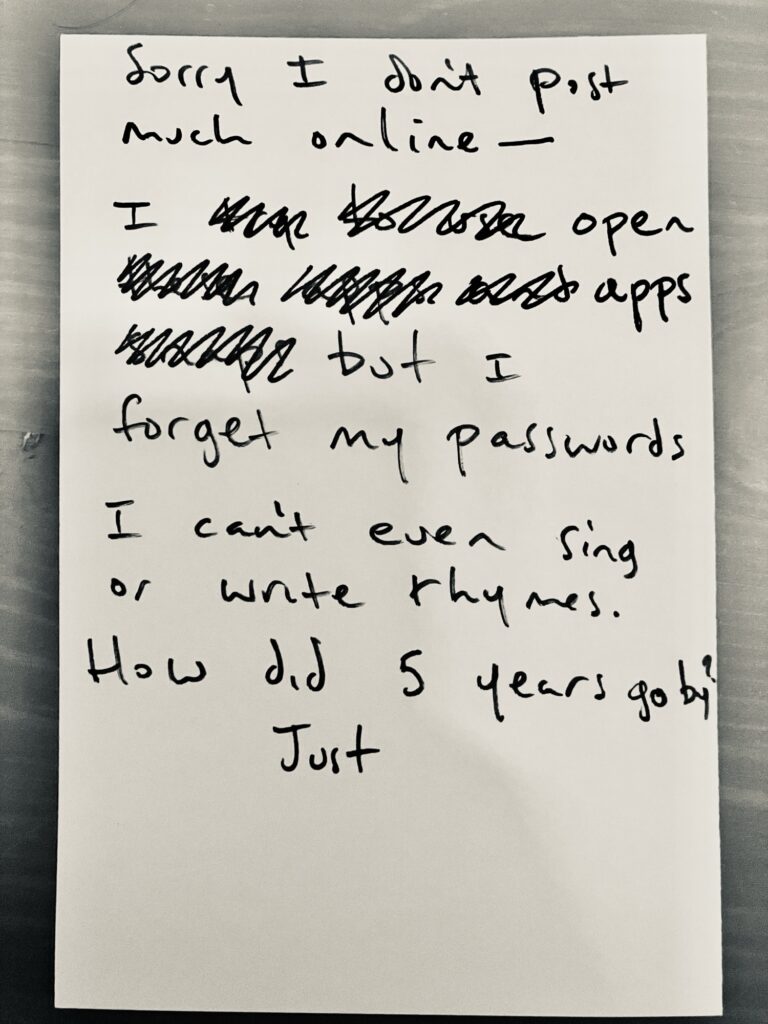 Sorry I don't post
much online —
I open
apps
but I
forget my passwords
I can't even sing
or write rhymes.
How did 5 years go by?
Just